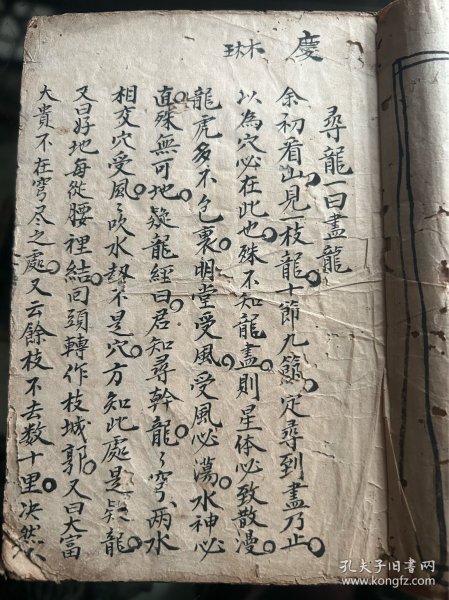 慶琳
尋龍一曰盡龍
余初看山見一枝龍。十節九節。定尋到盡乃止。
以為穴必在此也。殊不知龍盡。則星体必致散漫。
龍虎多不包裹。明堂受風。受風必蕩。水神必
直。殊無可地。疑龍經曰君知尋幹龍。々窮、兩水
相交穴受風。々吹水劫不是穴。方知此處是疑龍。
又曰好地每從腰裡結。回頭轉作枝城郭。又曰大富
大貴不在窮尽之處。又云餘枝不去数十里。决然
孔夫子旧书网
www.kongfz.com